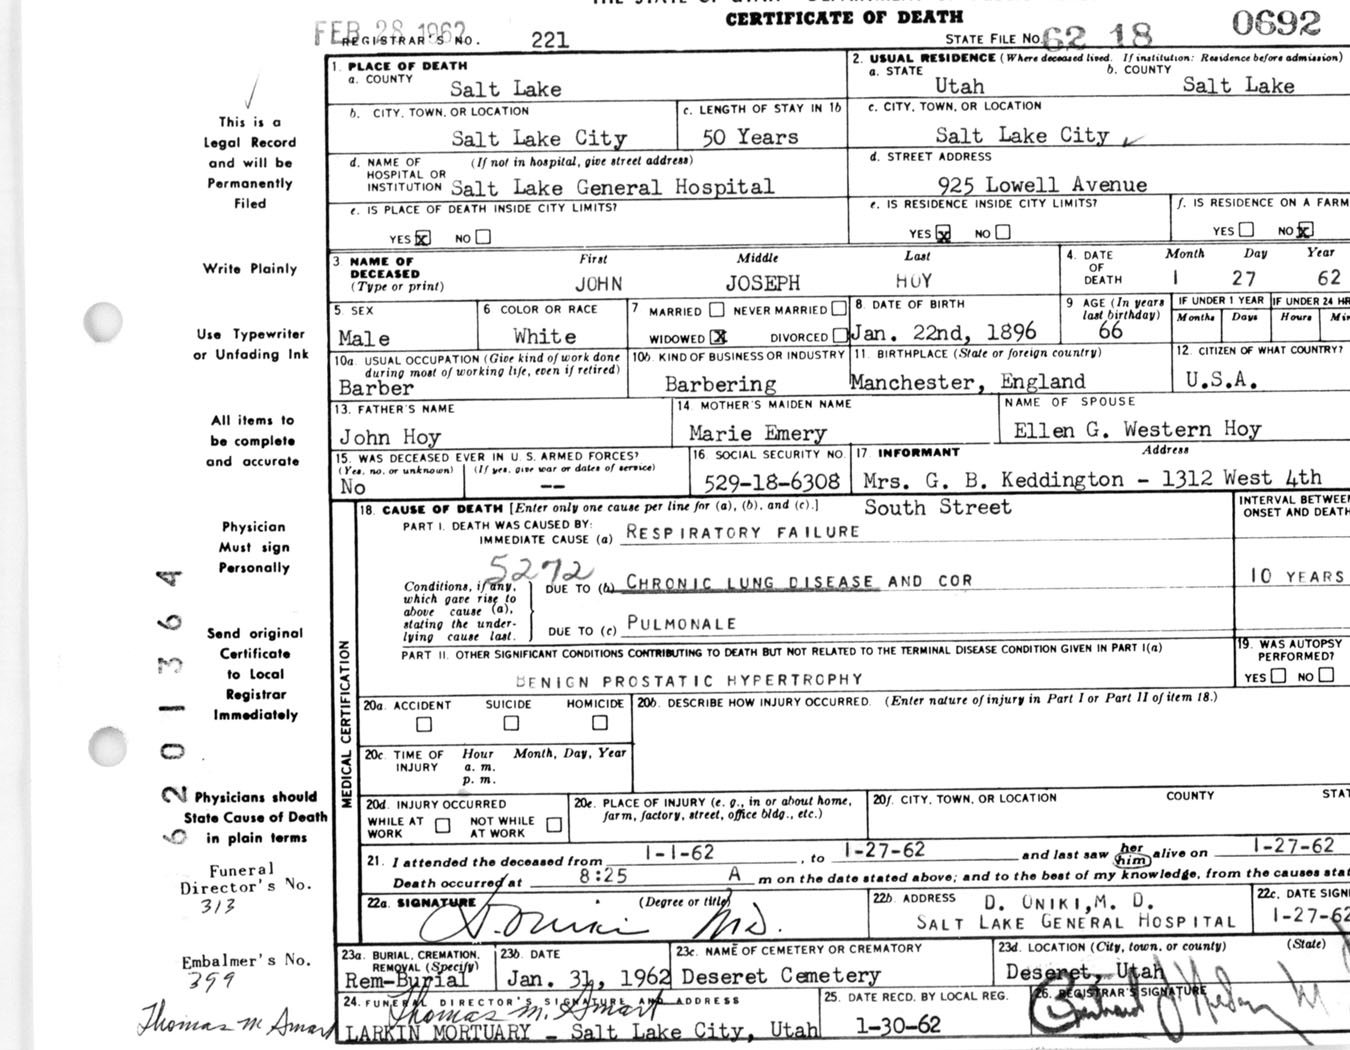 CERTIFICATE OF DEATH
FEB 28 1962
REGISTRAR'S NO. 221
STATE FILE NO. 62 18 0692
1. PLACE OF DEATH
a. COUNTY
Salt Lake
2. USUAL RESIDENCE (Where deceased lived. If institution: Residence before admission)
a. STATE
Utah
b. COUNTY
Salt Lake
b. CITY, TOWN, OR LOCATION
Salt Lake City
c. LENGTH OF STAY IN 1b
50 Years
c. CITY, TOWN, OR LOCATION
Salt Lake City
d. NAME OF HOSPITAL OR INSTITUTION
(If not in hospital, give street address)
Salt Lake General Hospital
d. STREET ADDRESS
925 Lowell Avenue
e. IS PLACE OF DEATH INSIDE CITY LIMITS?
YES x NO
e. IS RESIDENCE INSIDE CITY LIMITS?
YES x NO
f. IS RESIDENCE ON A FARM
YES NO x
3 NAME OF DECEASED
(Type or print)
First
JOHN
Middle
JOSEPH
Last
HOY
4. DATE OF DEATH
Month Day Year
1 27 62
5. SEX
Male
6 COLOR OR RACE
White
7 MARRIED NEVER MARRIED
WIDOWED X DIVORCED
8. DATE OF BIRTH
Jan. 22nd, 1896
9 AGE (In years last birthday)
66
IF UNDER 1 YEAR
Months Days
IF UNDER 24 HR
Hours
10a. USUAL OCCUPATION (Give kind of work done during most of working life, even if retired)
Barber
10b. KIND OF BUSINESS OR INDUSTRY
Barbering
11. BIRTHPLACE (State or foreign country)
Manchester, England
12. CITIZEN OF WHAT COUNTRY?
U.S.A.
13. FATHER'S NAME
John Hoy
14. MOTHER'S MAIDEN NAME
Marie Emery
NAME OF SPOUSE
Ellen G. Western Hoy
15. WAS DECEASED EVER IN U. S. ARMED FORCES?
(Yes, no, or unknown) (If yes, give war or dates of service)
No --
16 SOCIAL SECURITY NO.
529-18-6308
17. INFORMANT Address
Mrs. G. B. Keddington - 1312 West 4th
South Street
18. CAUSE OF DEATH [Enter only one cause per line for (a), (b), and (c).]
INTERVAL BETWEEN
ONSET AND DEATH
PART I. DEATH WAS CAUSED BY:
IMMEDIATE CAUSE (a) RESPIRATORY FAILURE
5272
Conditions, if any, which gave rise to above cause (a), stating the underlying cause last.
DUE TO (b) CHRONIC LUNG DISEASE AND COR
10 YEARS
DUE TO (c) PULMONALE
PART II. OTHER SIGNIFICANT CONDITIONS CONTRIBUTING TO DEATH BUT NOT RELATED TO THE TERMINAL DISEASE CONDITION GIVEN IN PART I(a)
BENIGN PROSTATIC HYPERTROPHY
19. WAS AUTOPSY PERFORMED?
YES NO
MEDICAL CERTIFICATION
20a. ACCIDENT SUICIDE HOMICIDE
20b. DESCRIBE HOW INJURY OCCURRED. (Enter nature of injury in Part I or Part II of item 18.)
20c. TIME OF INJURY
Hour Month, Day, Year
a. m.
p. m.
20d. INJURY OCCURRED
WHILE AT WORK NOT WHILE AT WORK
20e. PLACE OF INJURY (e. g., in or about home, farm, factory, street, office bldg., etc.)
20f. CITY, TOWN, OR LOCATION COUNTY
21. I attended the deceased from 1-1-62, to 1-27-62 and last saw her him alive on 1-27-62
Death occurred at 8:25 A m on the date stated above; and to the best of my knowledge, from the causes
22a. SIGNATURE (Degree or title)
M.D.
22b. ADDRESS
D. ONIKI, M. D.
SALT LAKE GENERAL HOSPITAL
22c. DATE
1-27-62
23a. BURIAL, CREMATION, REMOVAL (Specify)
Rem-Burial
23b. DATE
Jan. 31, 1962
23c. NAME OF CEMETERY OR CREMATORY
Deseret Cemetery
23d. LOCATION (City, town, or county) (State)
Deseret, Utah
24. FUNERAL DIRECTOR'S SIGNATURE AND ADDRESS
Thomas M. Smart
LARKIN MORTUARY - Salt Lake City, Utah
25. DATE RECD. BY LOCAL REG.
1-30-62
26. REGISTRAR'S SIGNATURE
This is a
Legal Record
and will be
Permanently
Filed
Write Plainly
Use Typewriter
or Unfading Ink
All items to
be complete
and accurate
Physician
Must sign
Personally
Send original
Certificate
to Local
Registrar
Immediately
Physicians should
State Cause of Death
in plain terms
Funeral
Director's No.
313
Embalmer's No.
399
Thomas M Smart
6201364